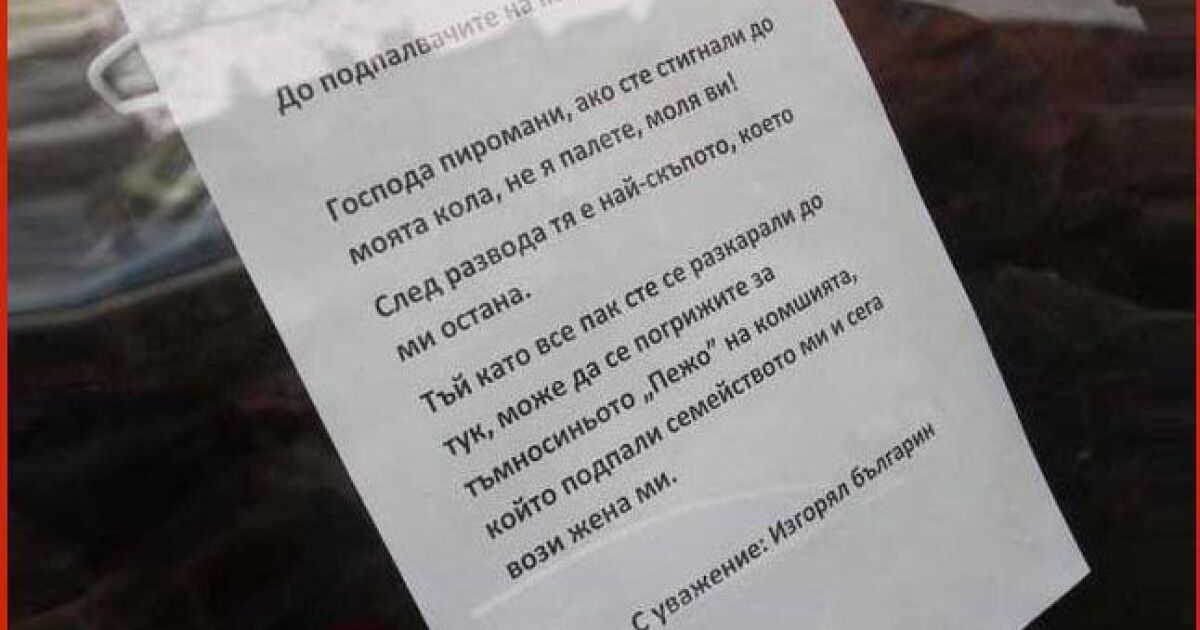 До подпалвачите на
Господа пиромани, ако сте стигнали до
моята кола, не я палете, моля ви!
След развода тя е най-скъпото, което
ми остана.
Тъй като все пак сте се разкарали до
тук, може да се погрижите за
тъмносиньото „Пежо” на комшията,
който подпали семейството ми и сега
вози жена ми.
С уважение: Изгорял българин